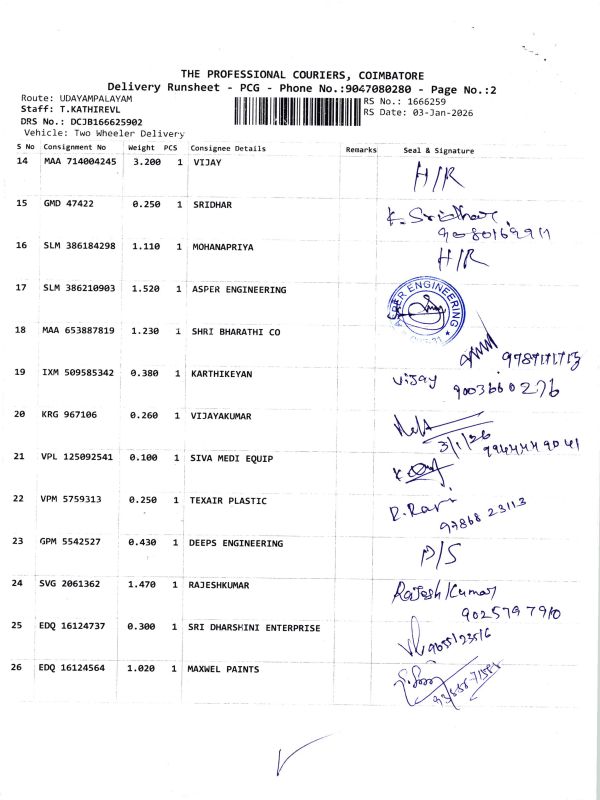 THE PROFESSIONAL COURIERS, COIMBATORE
Delivery Runsheet - PCG - Phone No.:9047080280 - Page No.:2
Route: UDAYAMPALAYAM
Staff: T.KATHIREVL
DRS No.: DCJB166625902
Vehicle: Two Wheeler Delivery
RS No.: 1666259
RS Date: 03-Jan-2026
S No Consignment No Weight PCS Consignee Details Remarks Seal & Signature
14 MAA 714004245 3.200 1 VIJAY H/R
15 GMD 47422 0.250 1 SRIDHAR K. Sridhar.
16 SLM 386184298 1.110 1 MOHANAPRIYA H/R
17 SLM 386210903 1.520 1 ASPER ENGINEERING ASPER ENGINEERING
18 MAA 653887819 1.230 1 SHRI BHARATHI CO
19 IXM 509585342 0.380 1 KARTHIKEYAN Vijay
9003660276
20 KRG 967106 0.260 1 VIJAYAKUMAR
3/1/26
9944449041
21 VPL 125092541 0.100 1 SIVA MEDI EQUIP
22 VPM 5759313 0.250 1 TEXAIR PLASTIC R. Ravi
97868 23113
23 GPM 5542527 0.430 1 DEEPS ENGINEERING D/S
24 SVG 2061362 1.470 1 RAJESHKUMAR Rajesh Kumar
9025797910
25 EDQ 16124737 0.300 1 SRI DHARSHINI ENTERPRISE
9655123516
26 EDQ 16124564 1.020 1 MAXWEL PAINTS